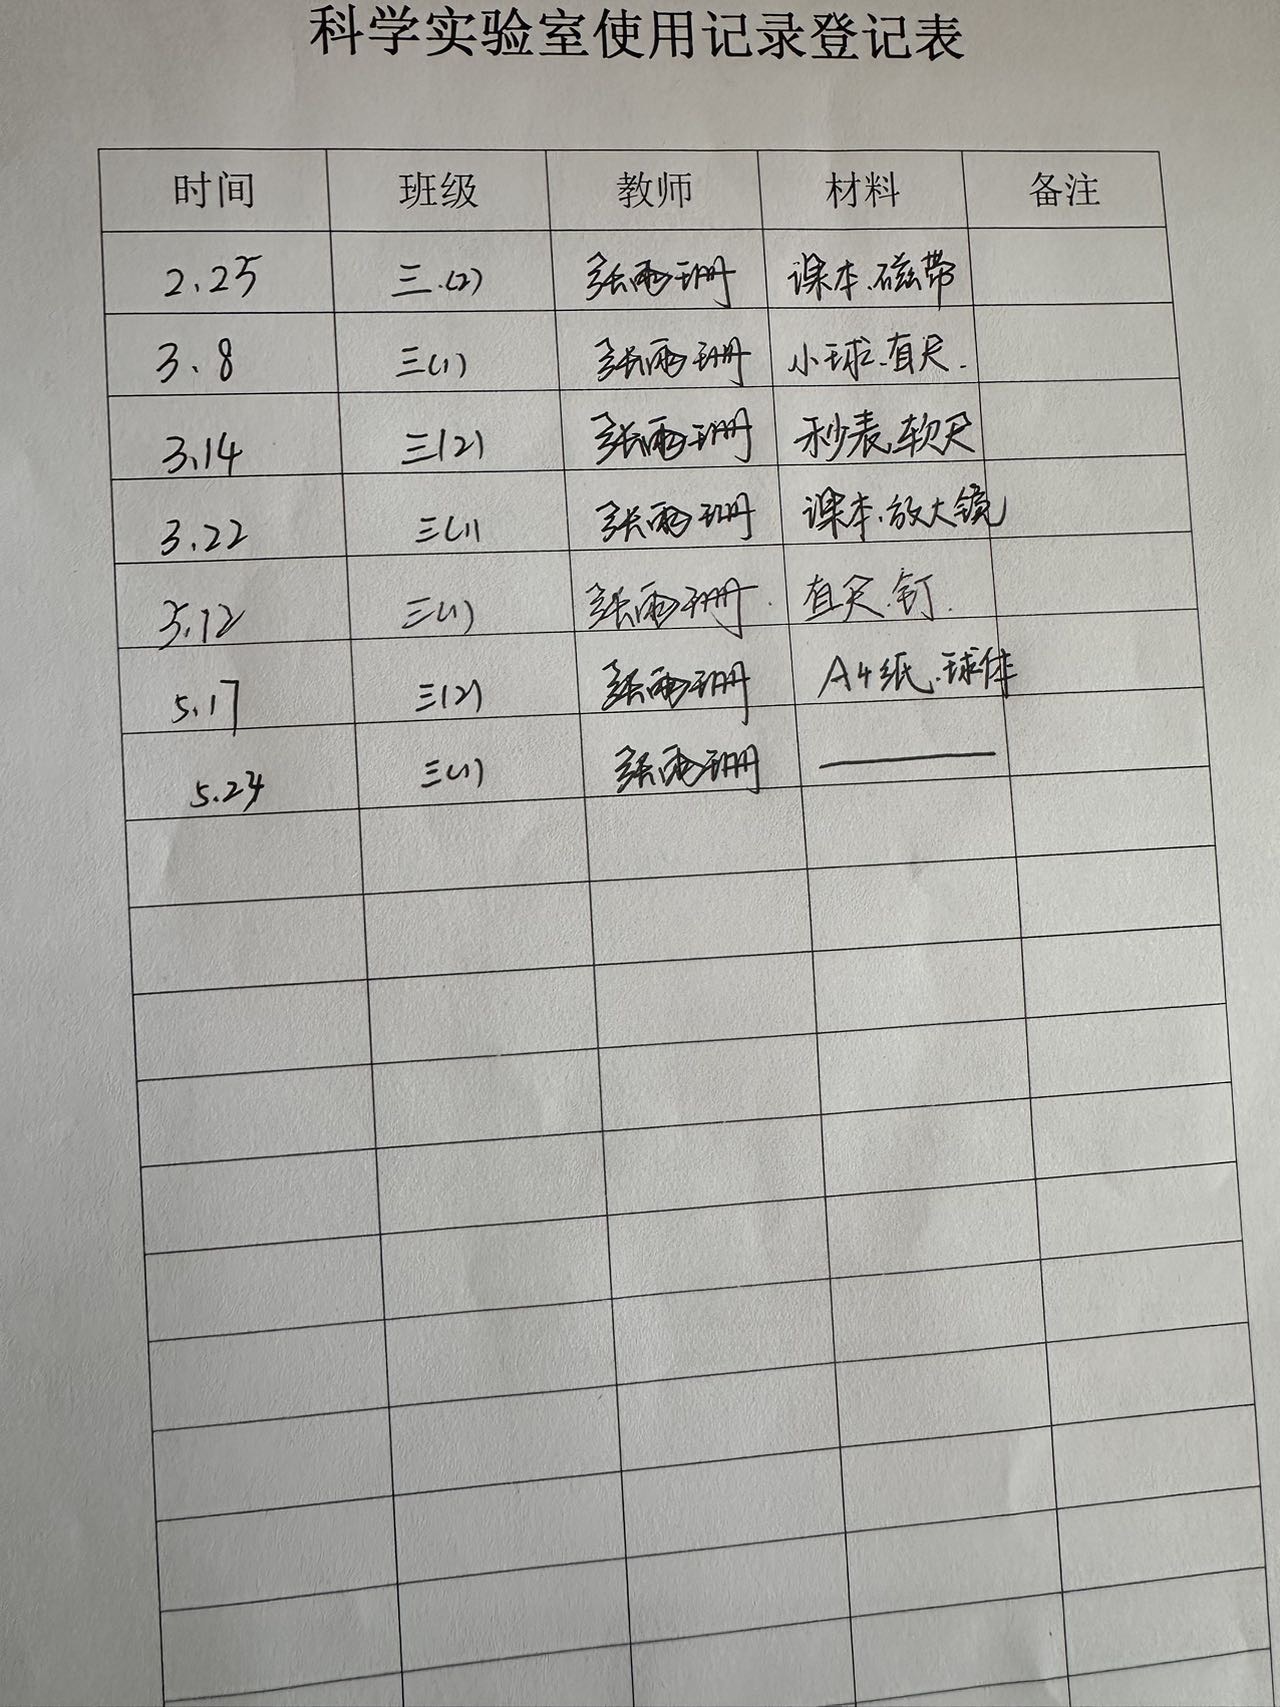 科学实验室使用记录登记表
时间 班级 教师 材料 备注
2.25 三.(2) 张雨珊 课本.磁带
3.8 三(1) 张雨珊 小球.直尺.
3.14 三(2) 张雨珊 秒表.软尺
3.22 三(1) 张雨珊 课本.放大镜
5.12 三(1) 张雨珊. 直尺.钉.
5.17 三(2) 张雨珊 A4纸.球体
5.24 三(1) 张雨珊 ——